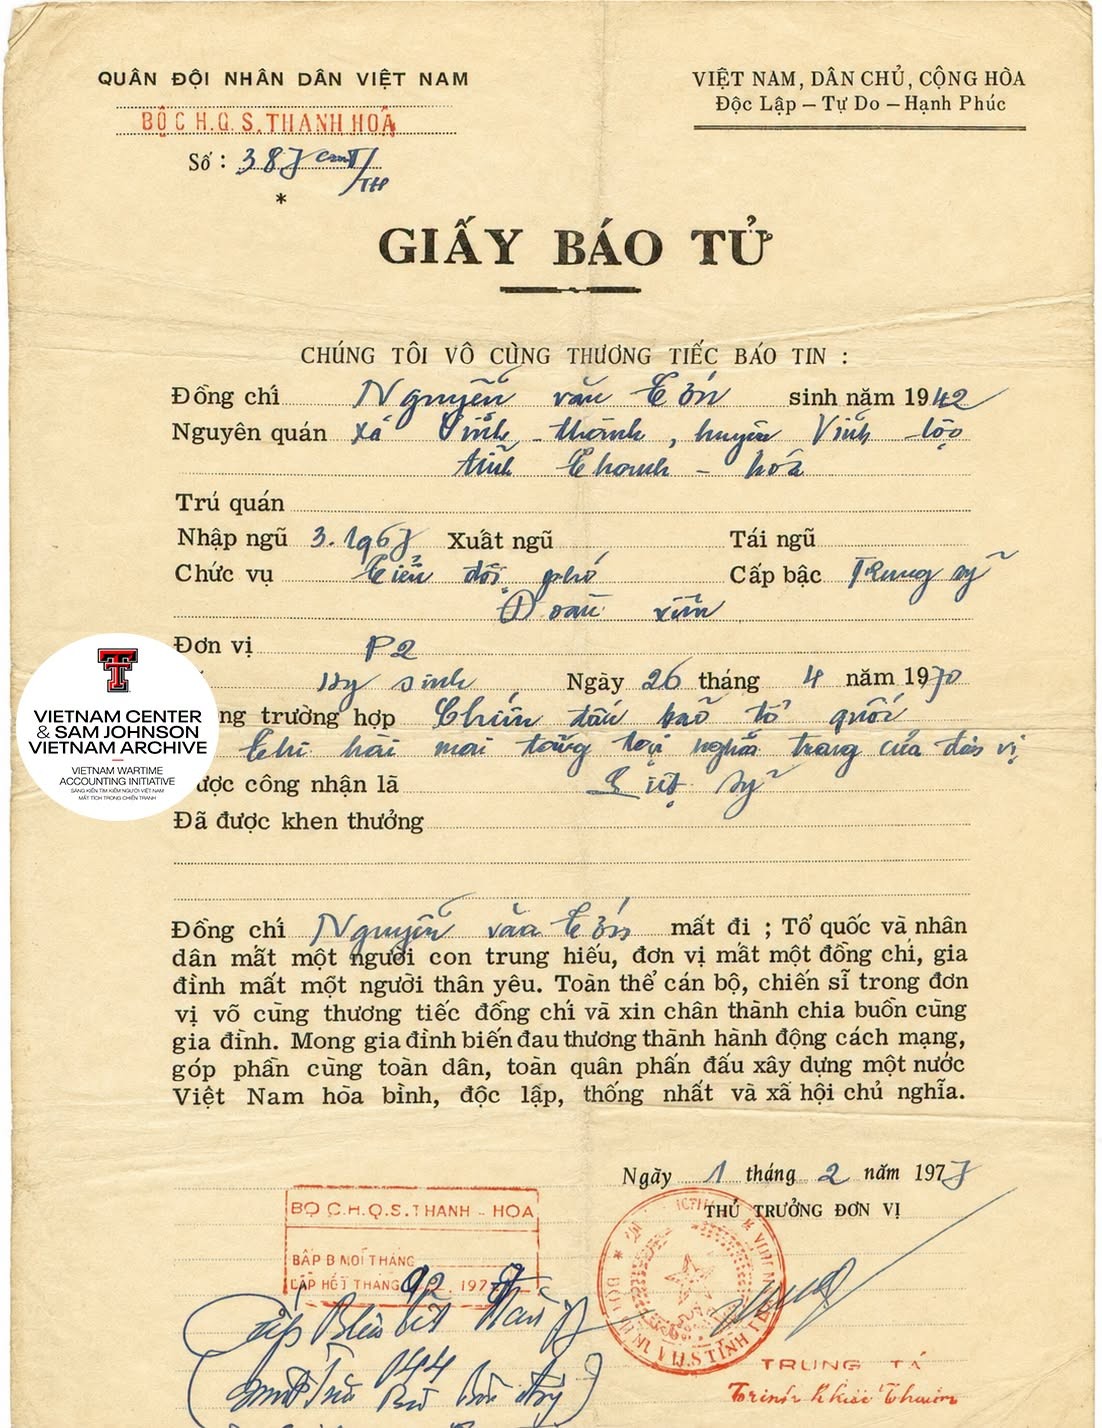 QUÂN ĐỘI NHÂN DÂN VIỆT NAM
BỘ C.H.Q.S. THANH HOÁ
Số : 387
*
VIỆT NAM, DÂN CHỦ, CỘNG HÒA
Độc Lập – Tự Do – Hạnh Phúc
GIẤY BÁO TỬ
CHÚNG TÔI VÔ CÙNG THƯƠNG TIẾC BÁO TIN :
Đồng chí Nguyễn văn sinh năm 1942
Nguyên quán xã Vĩnh thành, huyện Vĩnh lộc
tỉnh Thanh - hóa
Trú quán
Nhập ngũ 3.1967 Xuất ngũ Tái ngũ
Chức vụ Tiểu đội phó Cấp bậc Trung sỹ
Đoàn viên
Đơn vị P2
Hy sinh Ngày 26 tháng 4 năm 1970
ng trường hợp Chiến đấu bảo tổ quốc
Thi hài mai táng tại nghĩa trang của đơn vị
ược công nhận là Liệt sỹ
Đã được khen thưởng
Đồng chí Nguyễn văn mất đi ; Tổ quốc và nhân
dân mất một người con trung hiếu, đơn vị mất một đồng chí, gia
đình mất một người thân yêu. Toàn thể cán bộ, chiến sĩ trong đơn
vị vô cùng thương tiếc đồng chí và xin chân thành chia buồn cùng
gia đình. Mong gia đình biến đau thương thành hành động cách mạng,
góp phần cùng toàn dân, toàn quân phấn đấu xây dựng một nước
Việt Nam hòa bình, độc lập, thống nhất và xã hội chủ nghĩa.
Ngày 1 tháng 2 năm 1977
THỦ TRƯỞNG ĐƠN VỊ
BỘ C.H.Q.S. THANH - HOA
BẤP B MỖI THÁNG
CẤP HẾT THÁNG 92. 197
144
TRUNG TÁ
Trịnh Khắc
VIETNAM CENTER
& SAM JOHNSON
VIETNAM ARCHIVE
VIETNAM WARTIME
ACCOUNTING INITIATIVE
SÁNG KIẾN TÌM KIẾM NGƯỜI VIỆT NAM
MẤT TÍCH TRONG CHIẾN TRANH